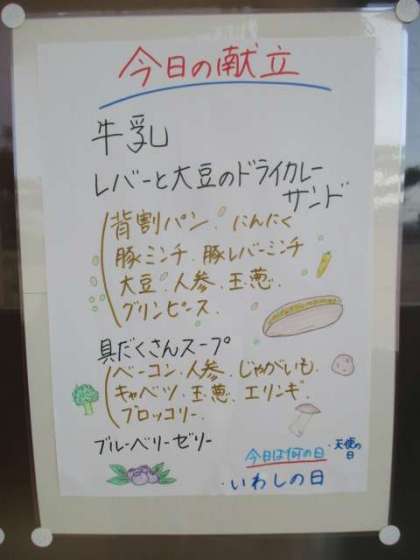 今日の献立
牛乳
レバーと大豆のドライカレー
サンド
背割パン．にんにく
豚ミンチ．豚レバーミンチ
大豆．人参．玉葱．
グリンピース．
具だくさんスープ
ベーコン．人参．じゃがいも．
キャベツ．玉葱．エリンギ．
ブロッコリー．
ブルーベリーゼリー
今日は何の日
・天使の日
・いわしの日